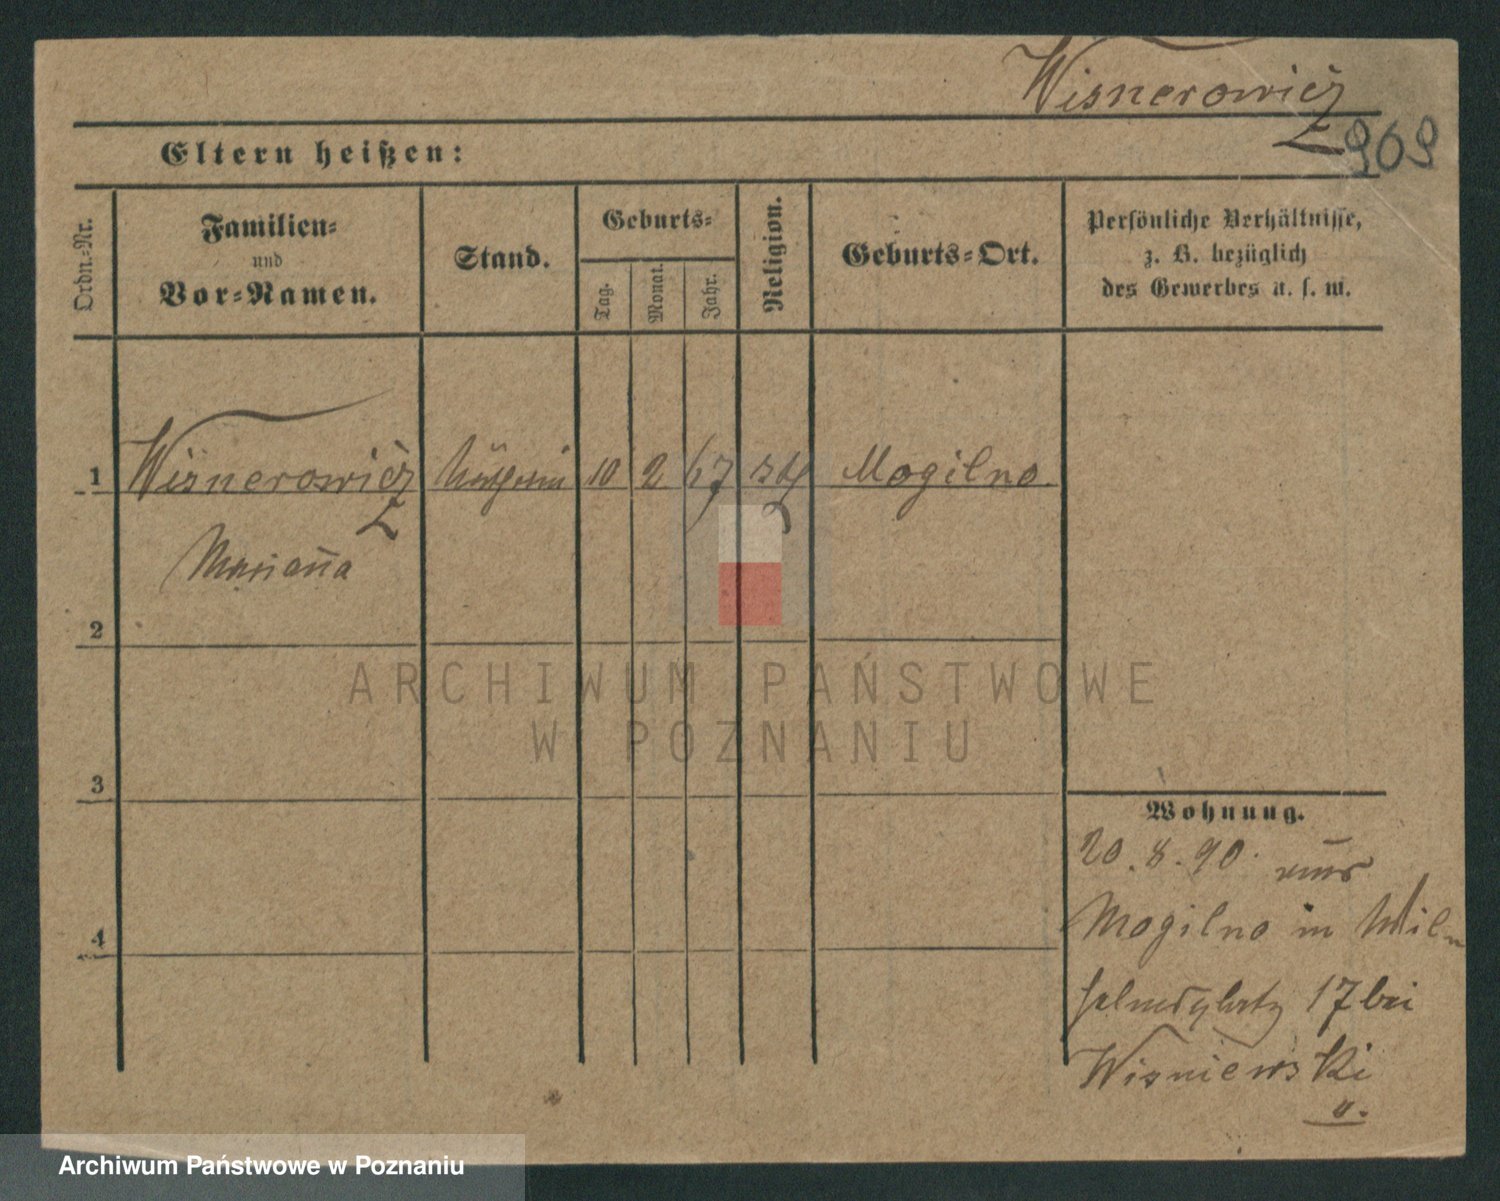 Wisnerowicz
969
Eltern heißen:
Ordn.-Nr.
Familien-
und
Vor-Namen.
Stand.
Geburts-
Tag.
Monat.
Jahr.
Religion.
Geburts-Ort.
Persönliche Verhältnisse,
z. B. bezüglich
des Gewerbes u. s. w.
1 Wisnerowicz 10 2 67 Mogilno
Marianna
2
3
4
Wohnung.
20. 8. 90. aus
Mogilno in Wil
helmsplatz 17 bei
Wisniewski
ARCHIWUM PAŃSTWOWE
W POZNANIU
Archiwum Państwowe w Poznaniu